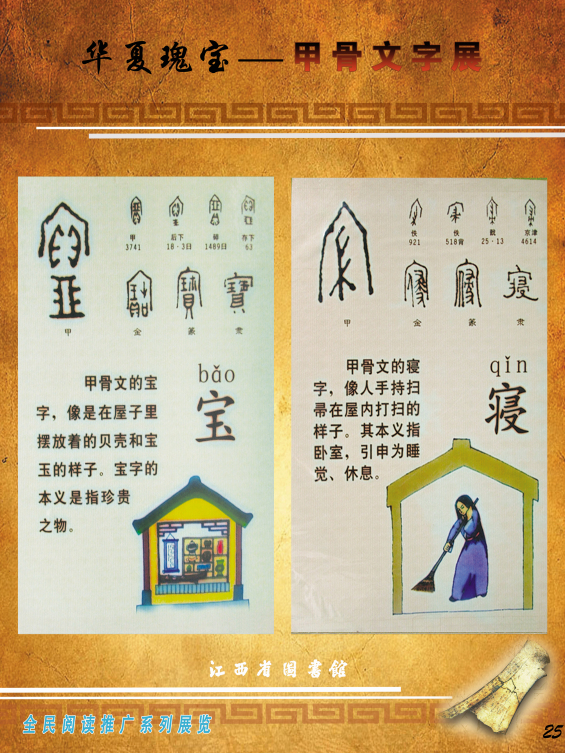 华夏瑰宝——甲骨文字展
甲 后下 碎 存下
3741 18·3日 1489日 63
甲 金 篆 隶
bǎo
宝
甲骨文的宝
字，像是在屋子里
摆放着的贝壳和宝
玉的样子。宝字的
本义是指珍贵
之物。
佚 佚 戬 京津
921 518背 25·13 4614
甲 金 篆 隶
qǐn
寝
甲骨文的寝
字，像人手持扫
帚在屋内打扫的
样子。其本义指
卧室，引申为睡
觉、休息。
江西省图書館
全民阅读推广系列展览
25